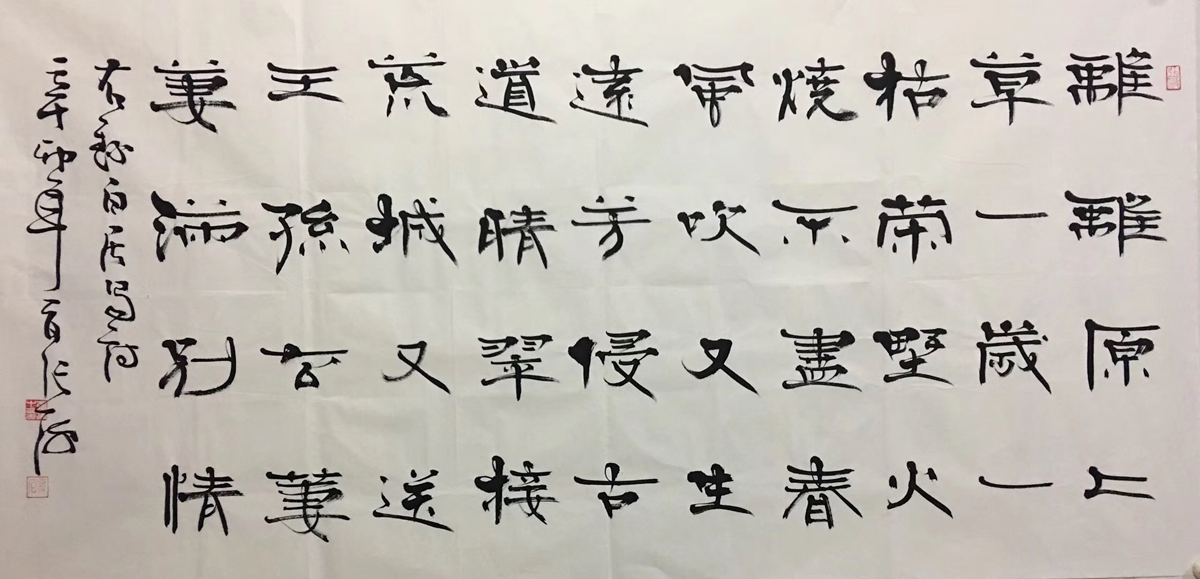 離離原上
草一歲一
枯榮野火
燒不盡春
風吹又生
遠芳侵古
道晴翠接
荒城又送
王孫去萋
萋滿別情
右錄白居易詩
辛卯年